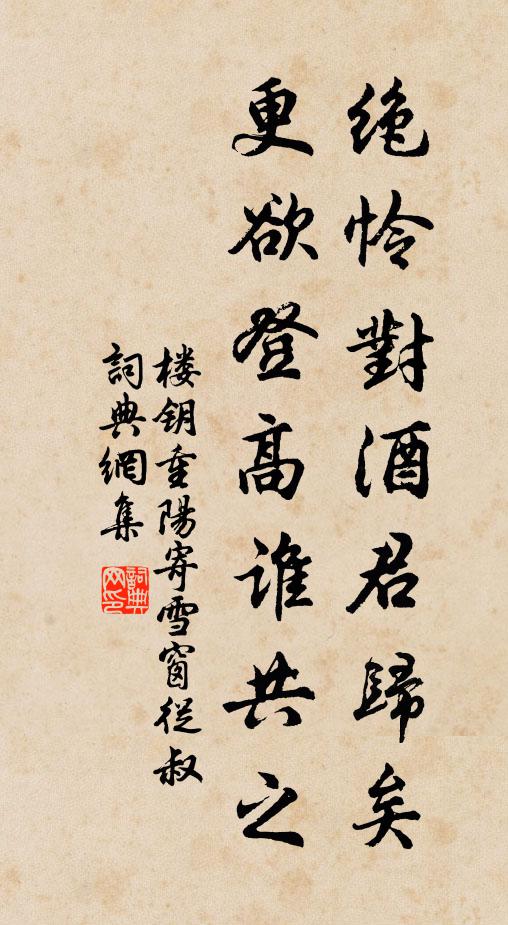 绝怜對酒君歸矣
更欲登高谁共之
楼钥重陽寄雪窗從叔
詞典網集
詞典网印